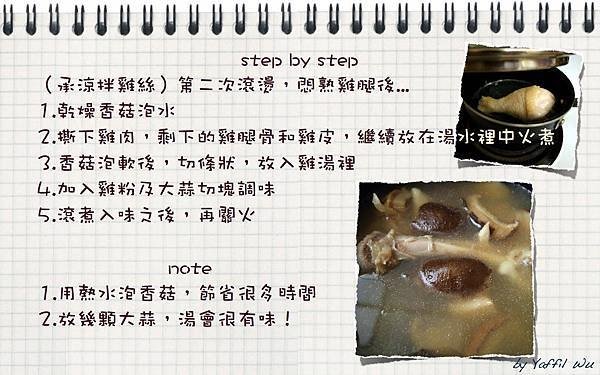 step by step
（承涼拌雞絲）第二次滾燙，悶熟雞腿後...
1.乾燥香菇泡水
2.撕下雞肉，剩下的雞腿骨和雞皮，繼續放在湯水裡中火煮
3.香菇泡軟後，切條狀，放入雞湯裡
4.加入雞粉及大蒜切塊調味
5.滾煮入味之後，再關火
note
1.用熱水泡香菇，節省很多時間
2.放幾顆大蒜，湯會很有味！
by Yaffil Wu